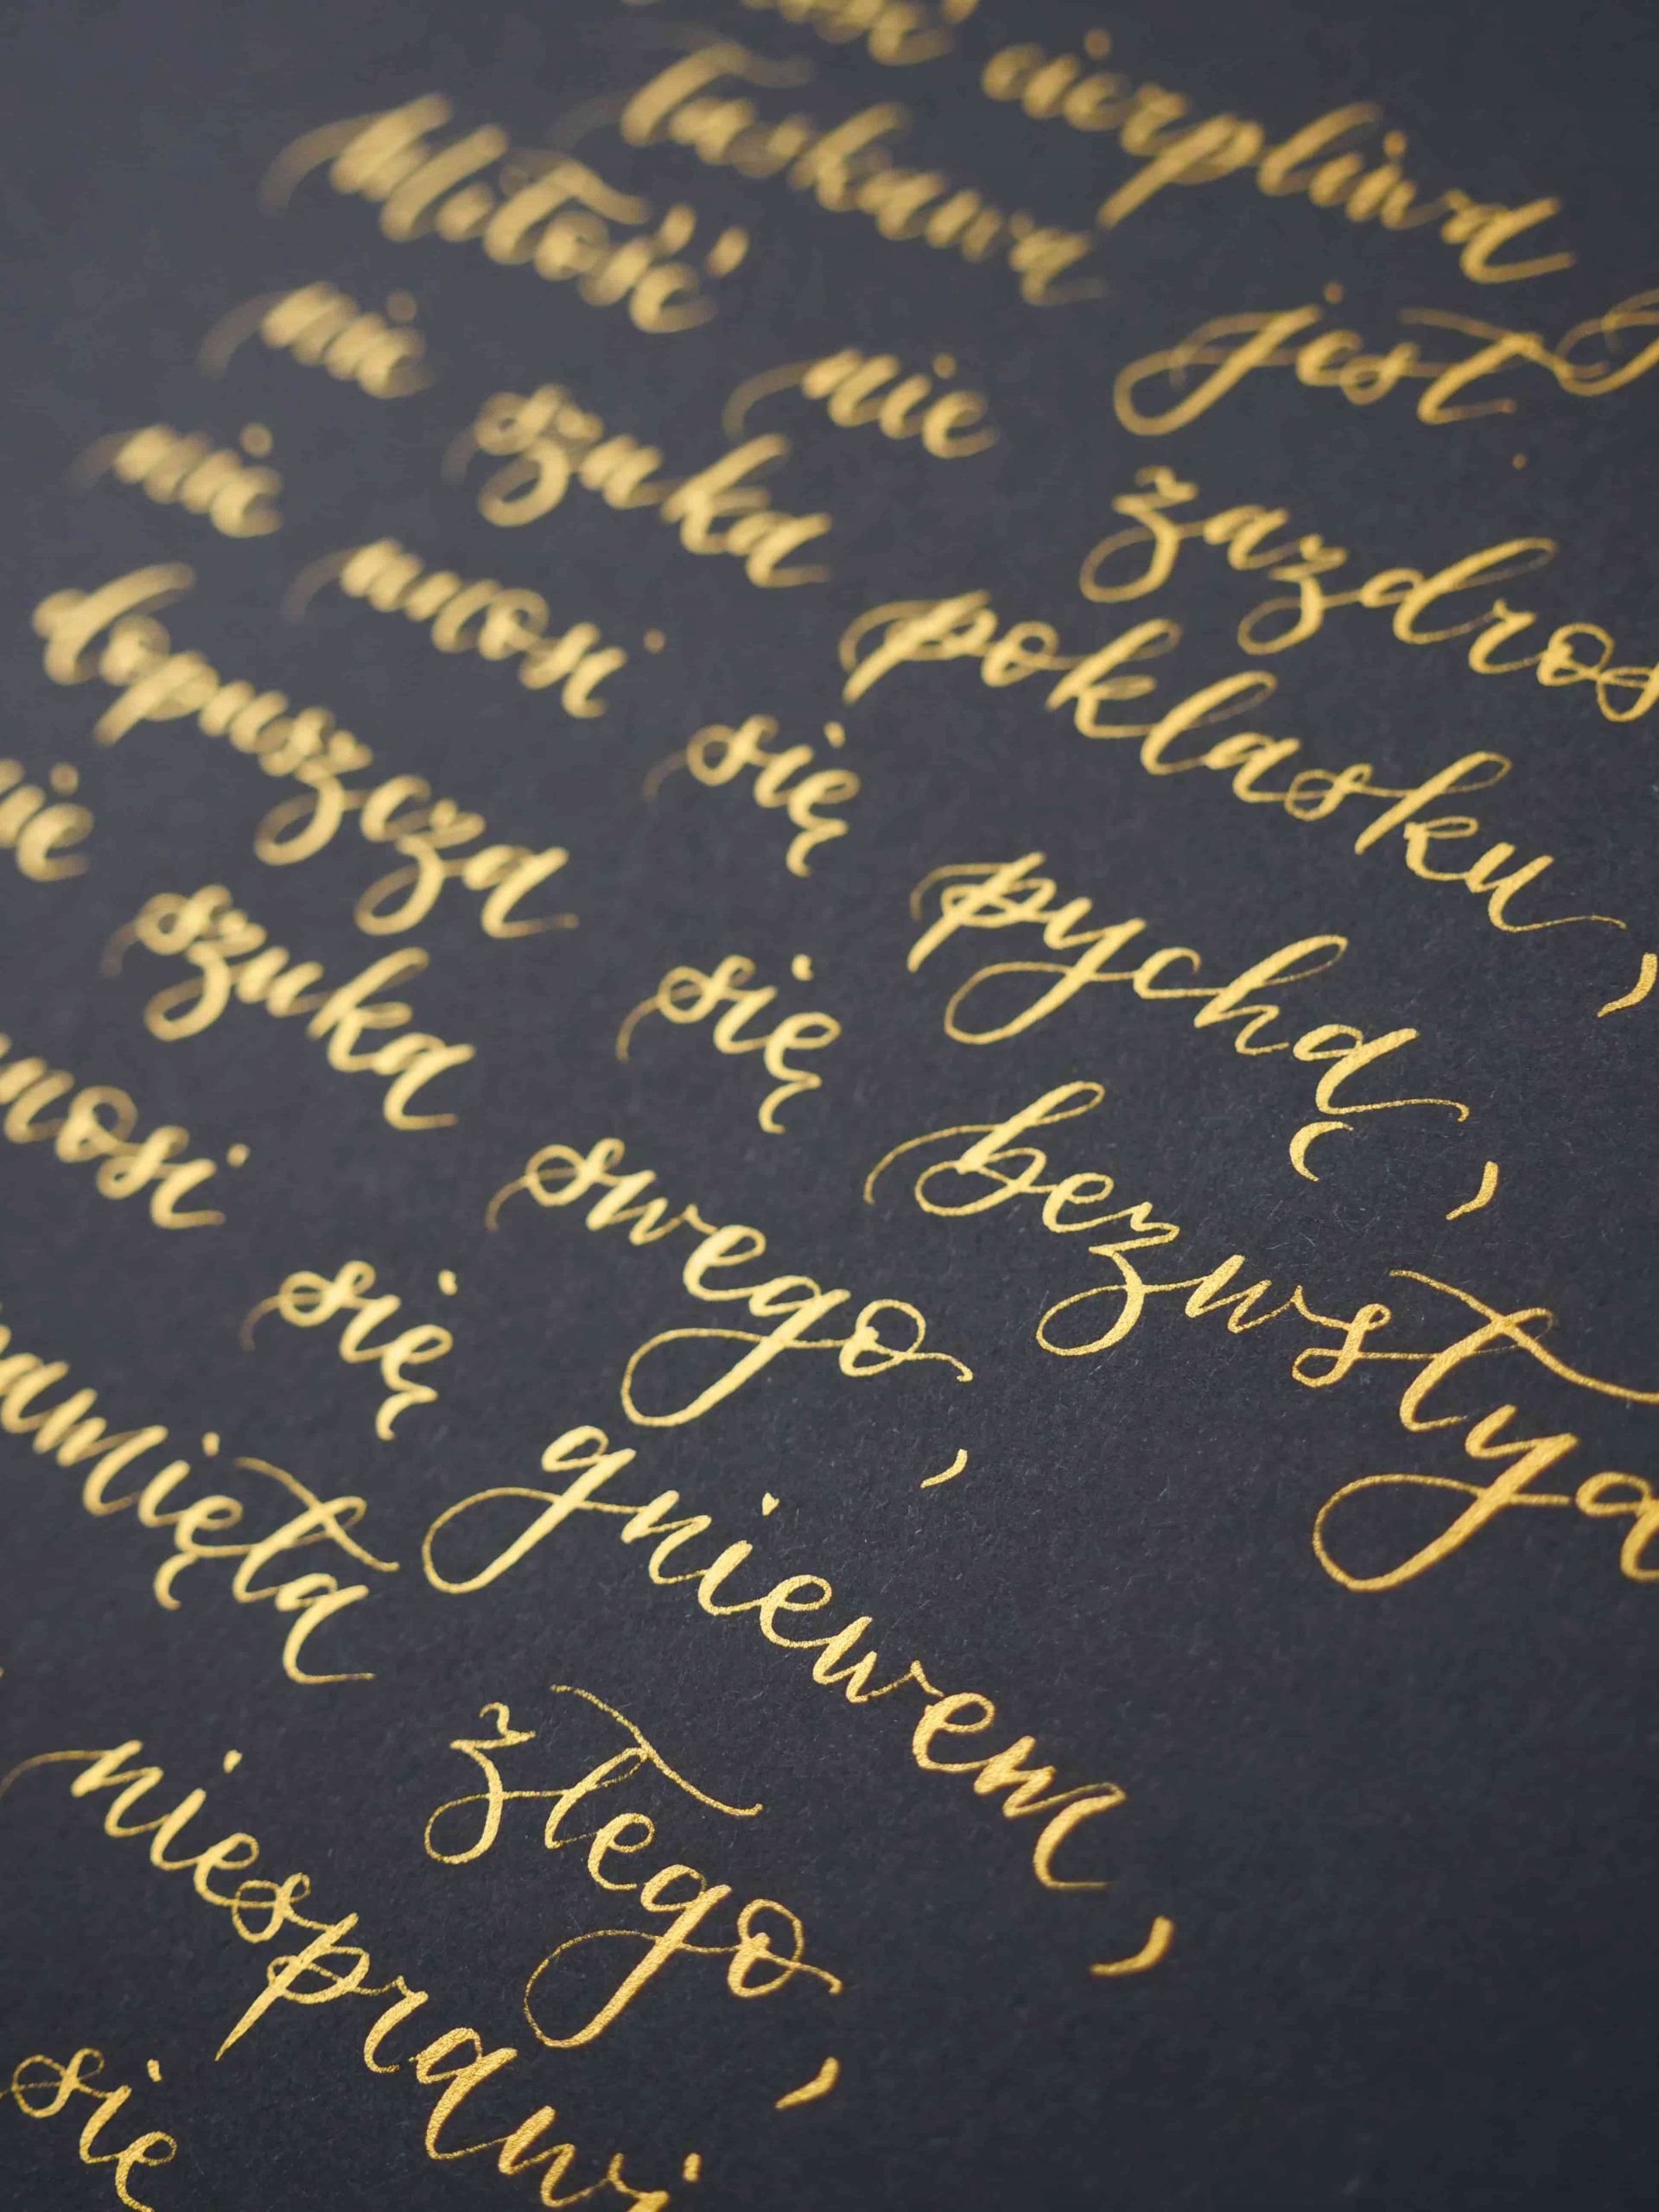 cierpliwa
łaskawa jest.
Miłość nie zazdros
nie szuka poklasku,
nie unosi się pychą,
dopuszcza się bezwsty
nie szuka swego,
unosi się gniewem,
pamięta złego,
niesprawi
się